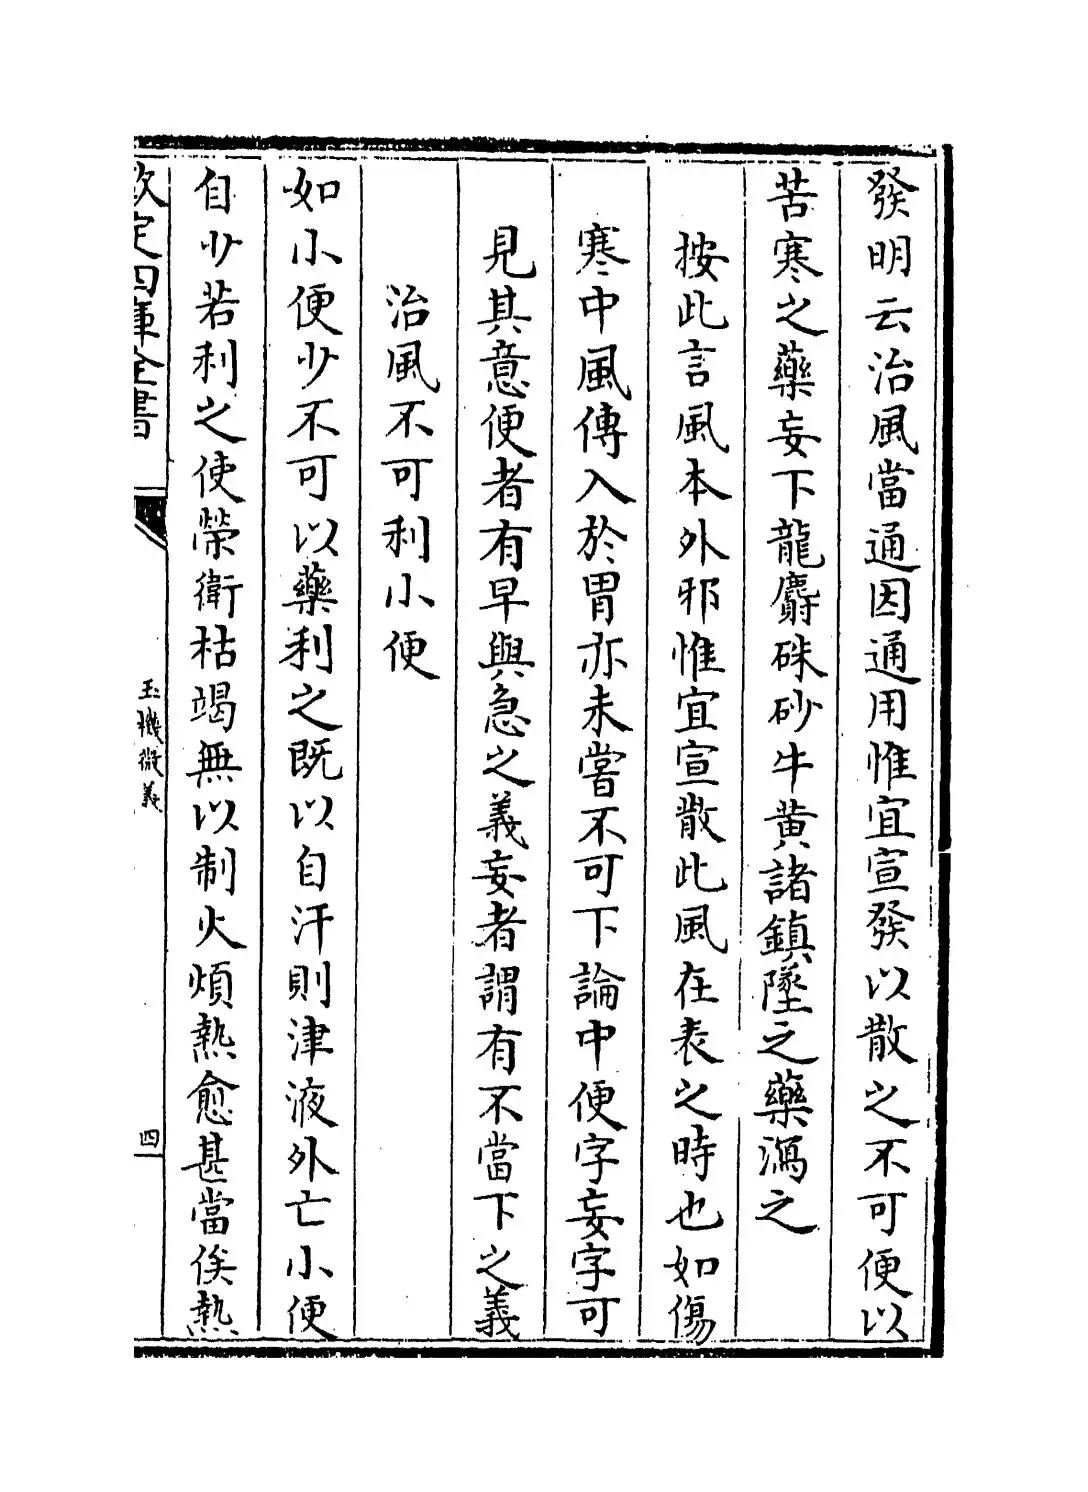 發明云治風當通因通用惟宜宣發以散之不可便以
苦寒之藥妄下龍麝硃砂牛黄諸鎮墜之藥瀉之
按此言風本外邪惟宜宣散此風在表之時也如傷
寒中風傳入於胃亦未嘗不可下論中便字妄字可
見其意便者有早與急之義妄者謂有不當下之義
治風不可利小便
如小便少不可以藥利之既以自汗則津液外亡小便
自少若利之使榮衛枯竭無以制火煩熱愈甚當俟熱
欽定四庫全書
玉機微義
四